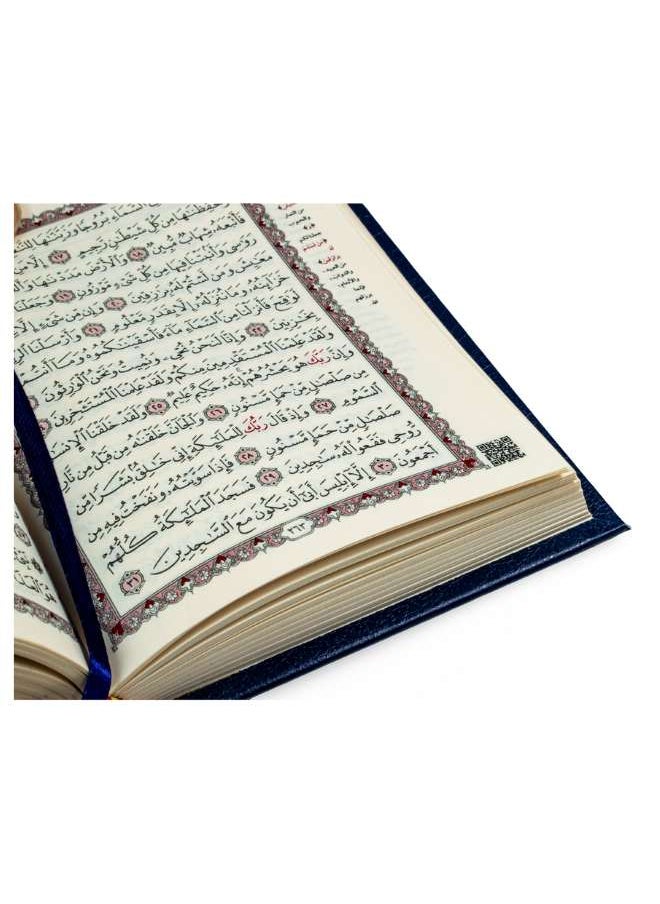 السَّمَاءِ بُرُوجًا وَزَيَّنَّٰهَا
وَحَفِظْنَٰهَا مِن كُلِّ شَيْطَٰنٍ رَّجِيمٍ ١٧ إِلَّا مَنِ
فَأَتْبَعَهُۥ شِهَابٌ مُّبِينٌ ١٨ وَٱلْأَرْضَ مَدَدْنَٰهَا
رَوَٰسِىَ وَأَنۢبَتْنَا فِيهَا مِن كُلِّ شَىْءٍ مَّوْزُونٍ ١٩ وَجَعَلْنَا
مَعَٰيِشَ وَمَن لَّسْتُمْ لَهُۥ بِرَٰزِقِينَ ٢٠ وَإِن مِّن شَىْءٍ
خَزَآئِنُهُۥ وَمَا نُنَزِّلُهُۥٓ إِلَّا بِقَدَرٍ مَّعْلُومٍ ٢١ وَأَرْسَلْنَا
لَوَٰقِحَ فَأَنزَلْنَا مِنَ ٱلسَّمَآءِ مَآءً فَأَسْقَيْنَٰكُمُوهُ وَمَآ أَنتُمْ
بِخَٰزِنِينَ ٢٢ وَإِنَّا لَنَحْنُ نُحْىِۦ وَنُمِيتُ وَنَحْنُ ٱلْوَٰرِثُونَ
وَلَقَدْ عَلِمْنَا ٱلْمُسْتَقْدِمِينَ مِنكُمْ وَلَقَدْ عَلِمْنَا ٱلْمُسْتَـْٔخِرِينَ
وَإِنَّ رَبَّكَ هُوَ يَحْشُرُهُمْ إِنَّهُۥ حَكِيمٌ عَلِيمٌ ٢٥ وَلَقَدْ خَلَقْنَا ٱلْإِنسَٰنَ
مِن صَلْصَٰلٍ مِّنْ حَمَإٍ مَّسْنُونٍ ٢٦ وَٱلْجَآنَّ خَلَقْنَٰهُ مِن قَبْلُ مِن نَّارِ
ٱلسَّمُومِ ٢٧ وَإِذْ قَالَ رَبُّكَ لِلْمَلَٰٓئِكَةِ إِنِّى خَٰلِقٌۢ بَشَرًا مِّن
صَلْصَٰلٍ مِّنْ حَمَإٍ مَّسْنُونٍ ٢٨ فَإِذَا سَوَّيْتُهُۥ وَنَفَخْتُ فِيهِ مِن
رُّوحِى فَقَعُوا۟ لَهُۥ سَٰجِدِينَ ٢٩ فَسَجَدَ ٱلْمَلَٰٓئِكَةُ كُلُّهُمْ
أَجْمَعُونَ ٣٠ إِلَّآ إِبْلِيسَ أَبَىٰٓ أَن يَكُونَ مَعَ ٱلسَّٰجِدِينَ ٣١
٢٦٣